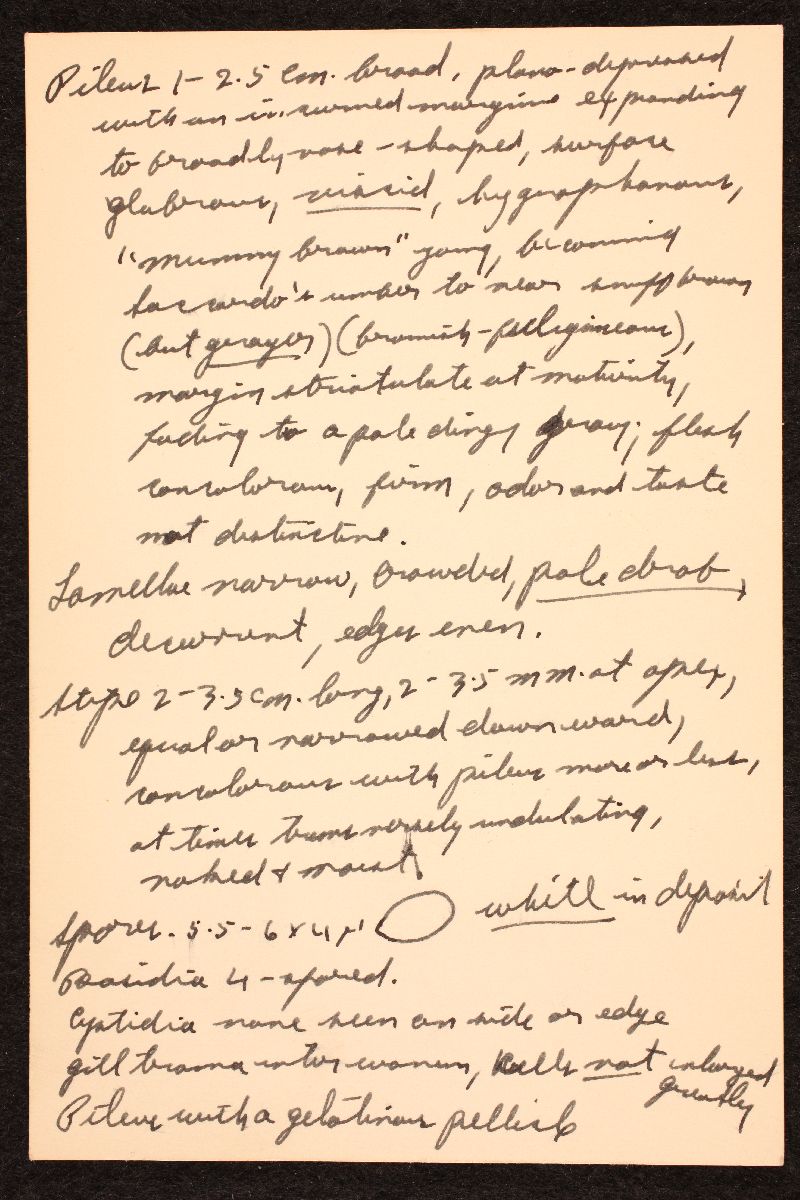 Pileus 1-2.5 cm. broad, plano-depressed
with an incurved margin expanding
to broadly vase-shaped, surface
glabrous, viscid, hygrophanous,
"mummy brown" young, becoming
Saccardo's umber to near snuff brown
(but grayer) (brownish-fuligineous),
margin striatulate at maturity,
fading to a pale dingy gray; flesh
concolorous, firm, odor and taste
not distinctive.
Lamellae narrow, crowded, pale drab,
decurrent, edges even.
Stipe 2-3.5 cm. long, 2-3.5 mm. at apex,
equal or narrowed downward,
concolorous with pileus more or less,
at times transversely undulating,
naked & moist
Spores. 5.5-6 x 4 µ white in deposit
Basidia 4-spored.
Cystidia none seen on side or edge
gill trama interwoven, cells not enlarged
greatly
Pileus with a gelatinous pellicle